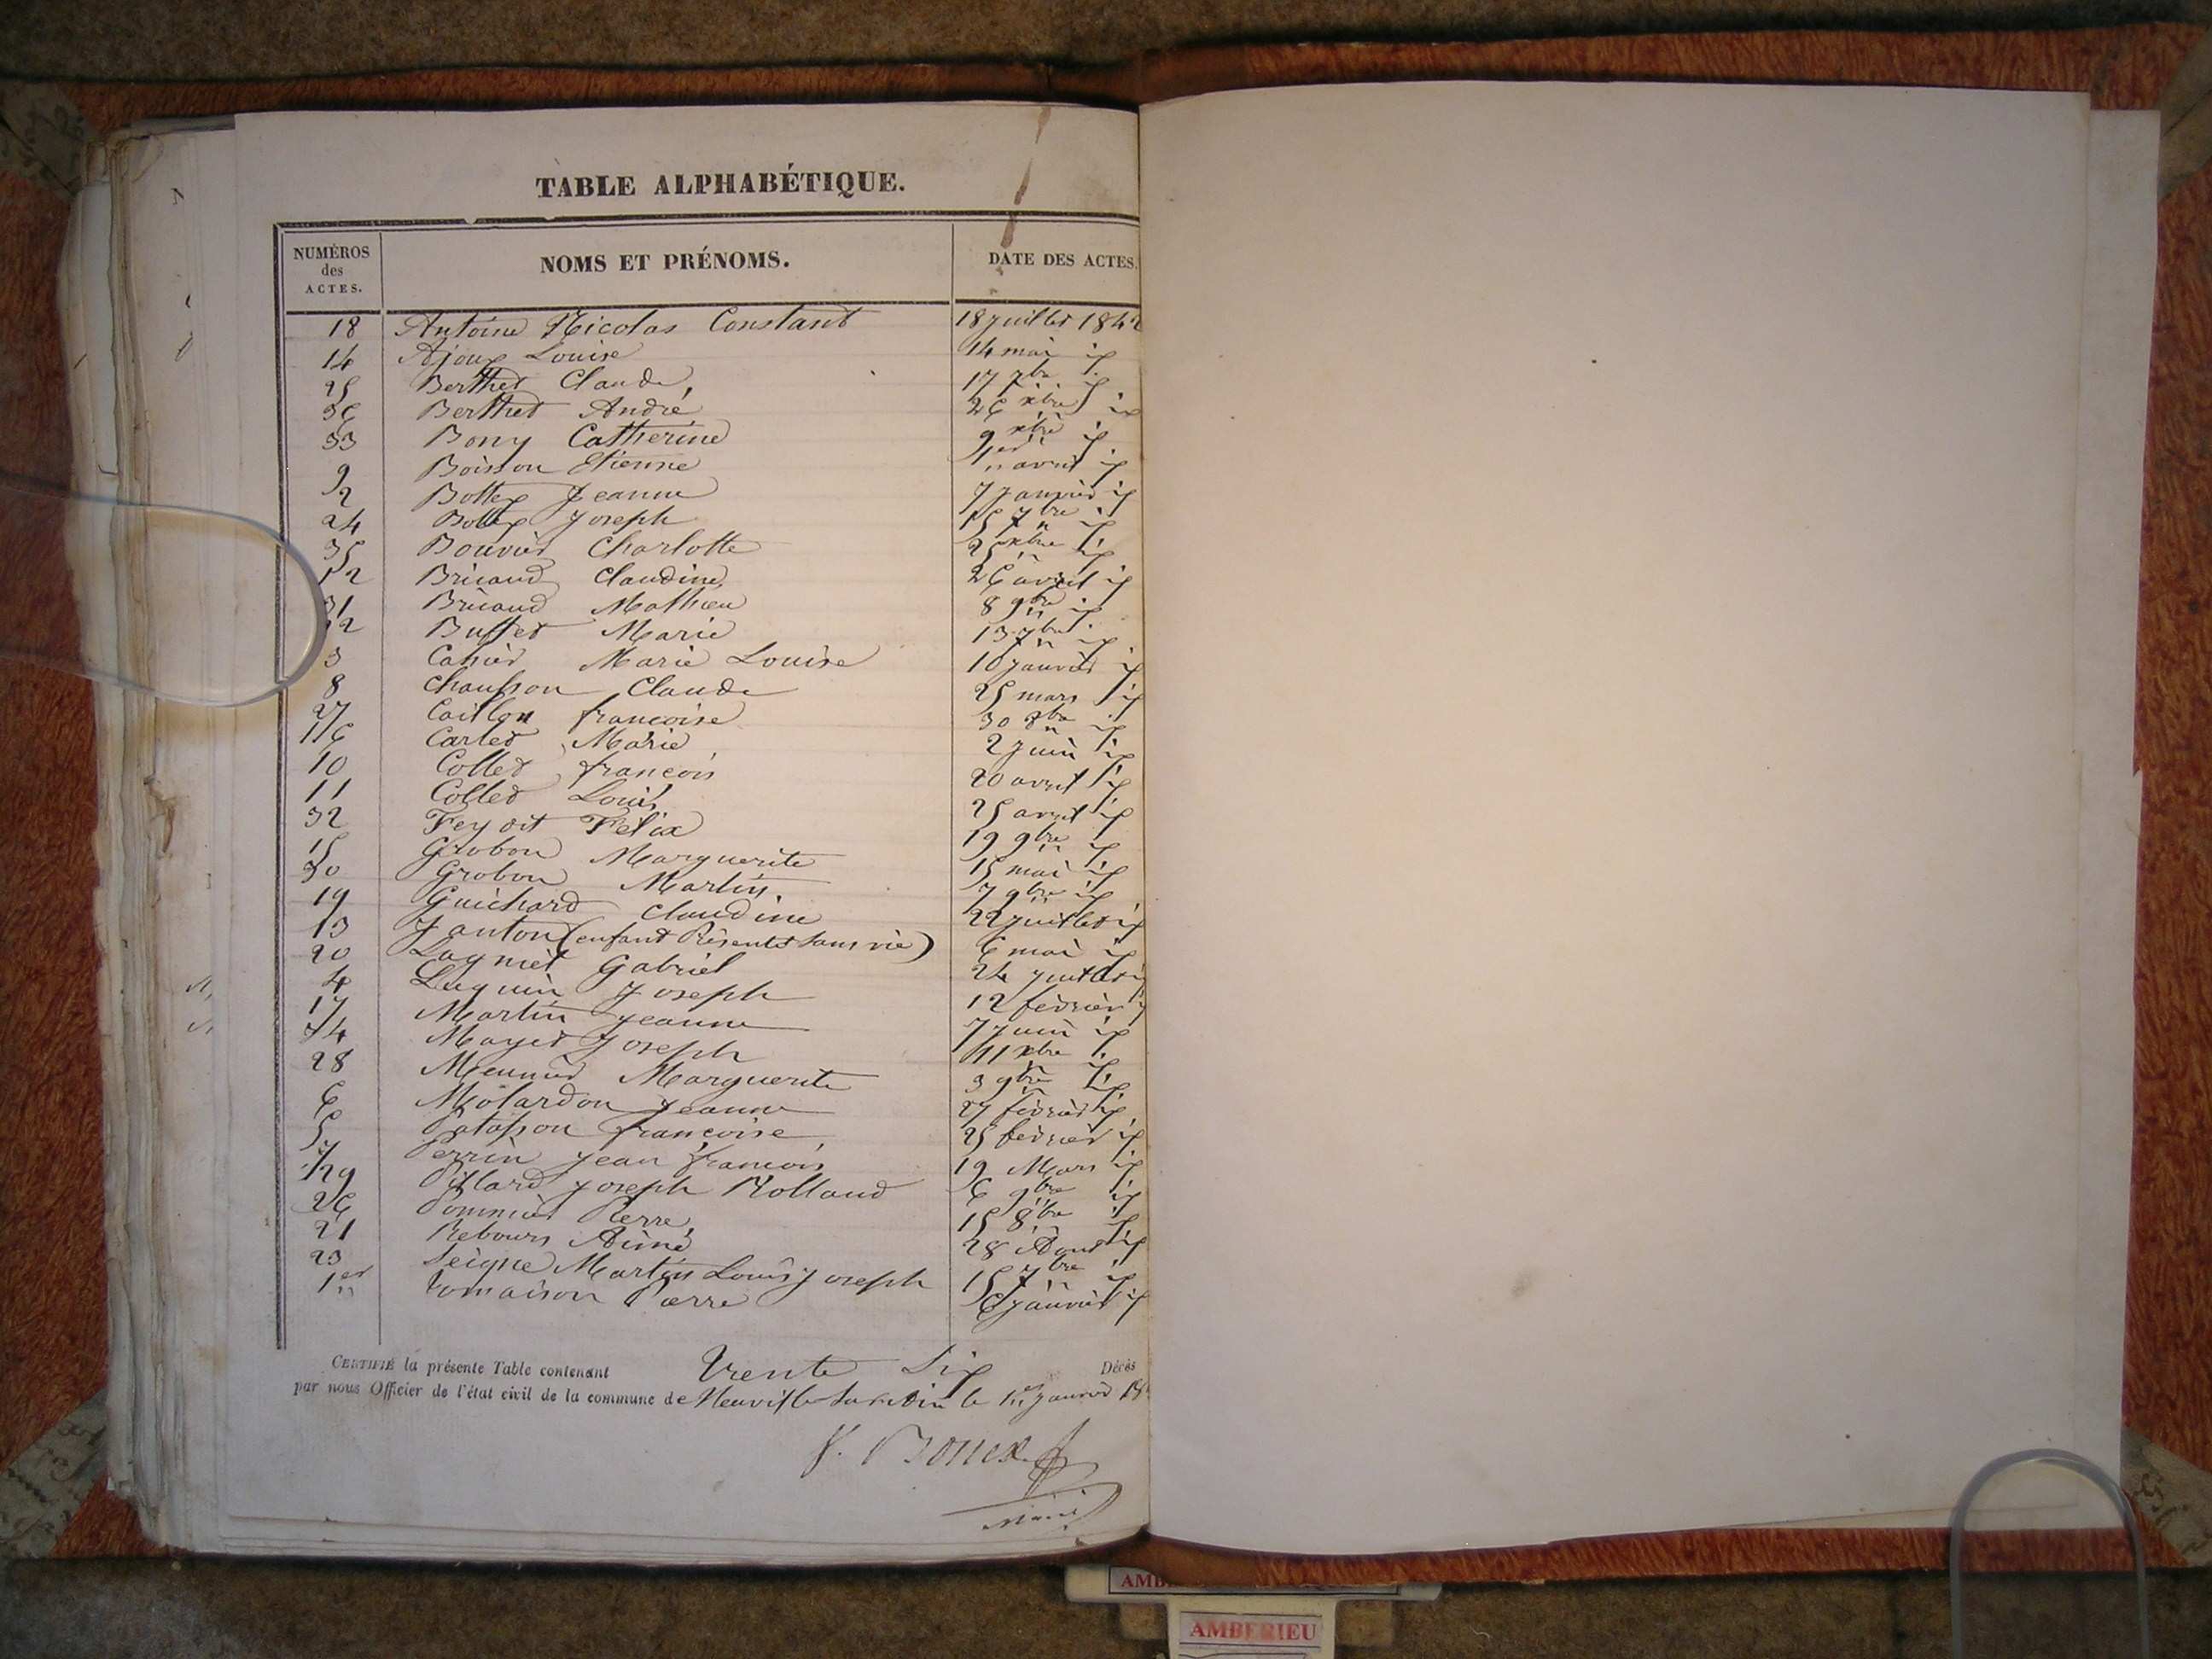 TABLE ALPHABÉTIQUE.
NUMÉROS des ACTES. NOMS ET PRÉNOMS. DATE DES ACTES.
18 Antoine Nicolas Constant 18 juillet 184
14 Ajoux Louise 14 mai id
25 Berthet Claude 17 7bre id
36 Berthet André 26 xbre id
33 Bony Catherine 9 xbre id
9 Boisson Etienne 1er avril id
2 Bottex Jeanne 7 janvier id
24 Bottex Joseph 15 7bre id
35 Bouvier Charlotte 25 xbre id
12 Bricaud Claudine 26 avril id
31 Bricaud Mathieu 8 9bre id
22 Buffet Marie 13 7bre id
3 Marie Louise 10 janvier id
8 Chausson Claude 25 mars id
27 Caillon françoise 30 8bre id
16 Carlet Marie 2 juin id
10 Collet françois 20 avril id
11 Collet Louis 25 avril id
32 Feydit Félix 19 9bre id
15 Grobon Marguerite 15 mai id
30 Grobon Martin 7 9bre id
19 Guichard Claudine 22 juillet id
13 Janton (enfant Présenté sans vie) 6 mai id
20 Lagniet Gabriel 24 juillet id
4 Luquin Joseph 12 février
17 Martin Jeanne 7 juin id
34 Mayet Joseph 11 xbre id
28 Meunier Marguerite 3 9bre id
6 Molardon Jeanne 27 février id
5 Patasson françoise 25 février id
7 Perrin Jean françois 19 Mars id
29 Pillard Joseph Rolland 6 9bre id
26 Pommier Pierre 15 8bre id
21 Rebours Aimé 28 Aout id
23 Seigne Martin Louis Joseph 15 7bre id
1er Vomaison Pierre 6 janvier id
CERTIFIÉ la présente Table contenant Trente Six Décès
par nous Officier de l'état civil de la commune de Neuville sur Ain le 1er janvier 18
Maire
AMBERIEU